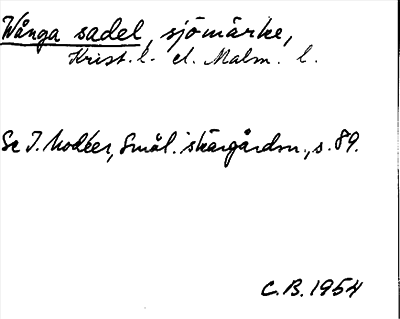 Wånga sadel, sjömärke,
Krist. l. el. Malm. l.
Se I. Modéer, Smål. skärgårdsn., s. 89.
C.B. 1954